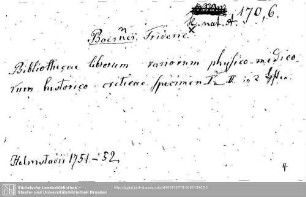 H. nat. A. 170,6.
Boerneri, Frideric
Bibliothecae librorum rariorum physico-medico-
rum historico-criticae Specimen I u II. in 2
Helmstadii 1751-52
4
Sächsische Landesbibliothek -
Staats- und Universitätsbibliothek Dresden